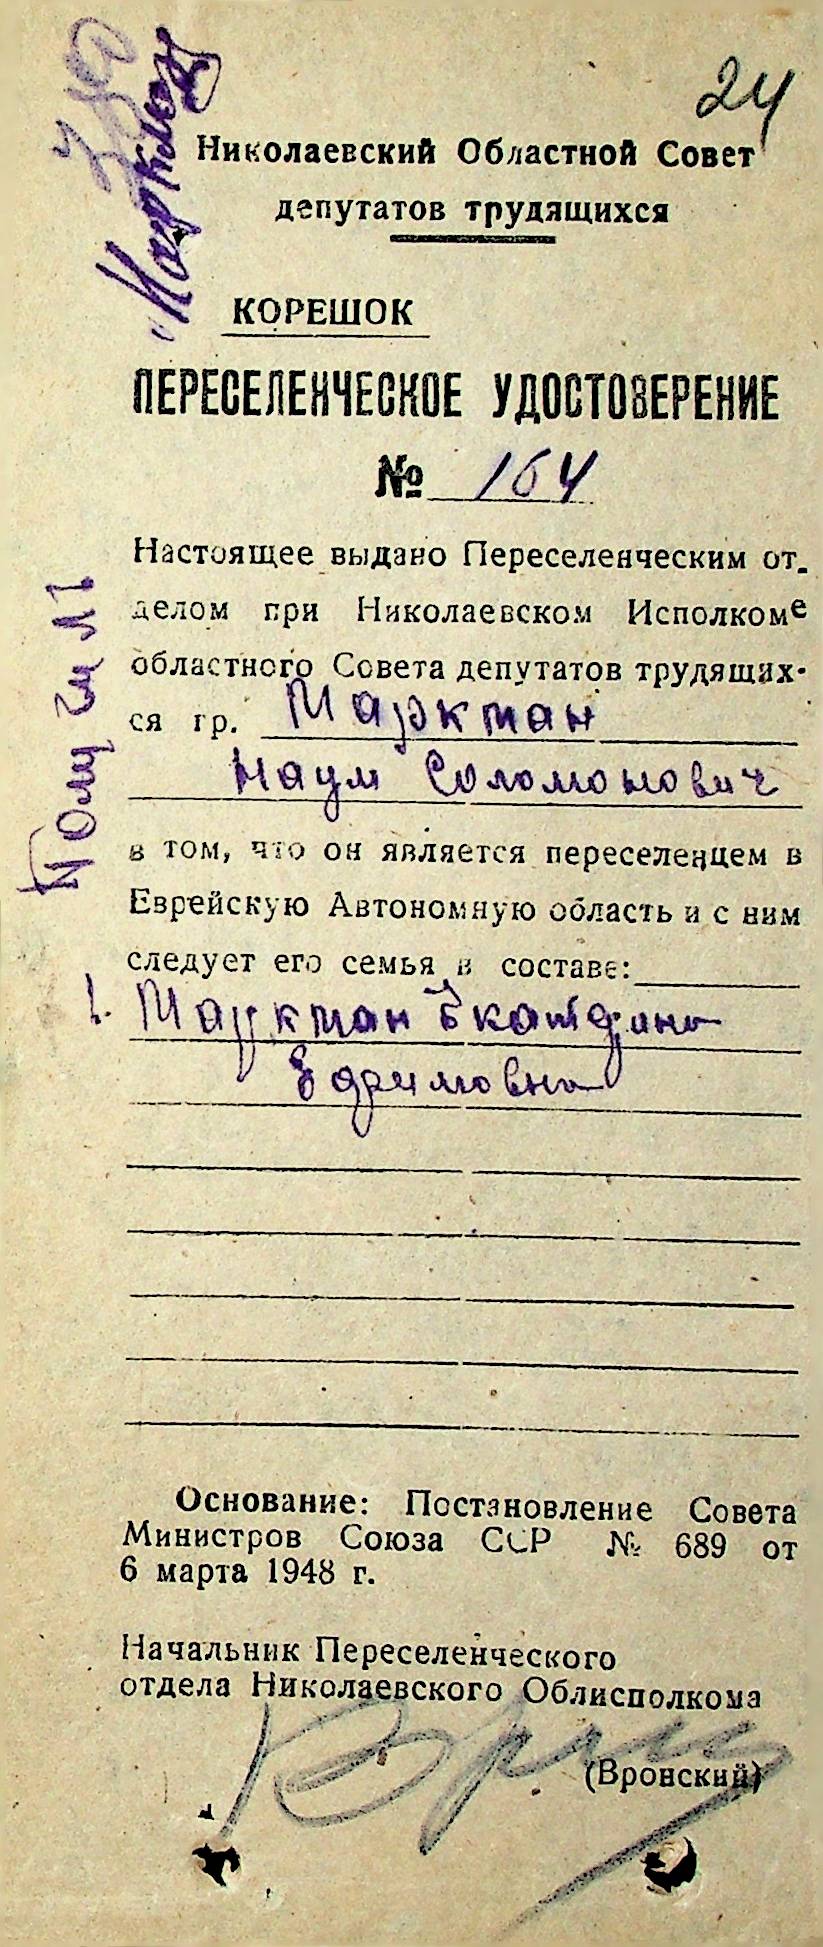 24
Николаевский Областной Совет
депутатов трудящихся
КОРЕШОК
ПЕРЕСЕЛЕНЧЕСКОЕ УДОСТОВЕРЕНИЕ
№ 164
Настоящее выдано Переселенческим от-
делом при Николаевском Исполкоме
областного Совета депутатов трудящих-
ся гр. Маркман
Наум Соломонович
в том, что он является переселенцем в
Еврейскую Автономную область и с ним
следует его семья в составе:
1. Маркман Екатерина
Ефимовна
Основание: Постановление Совета
Министров Союза ССР № 689 от
6 марта 1948 г.
Начальник Переселенческого
отдела Николаевского Облисполкома
(Вронский)
Получил